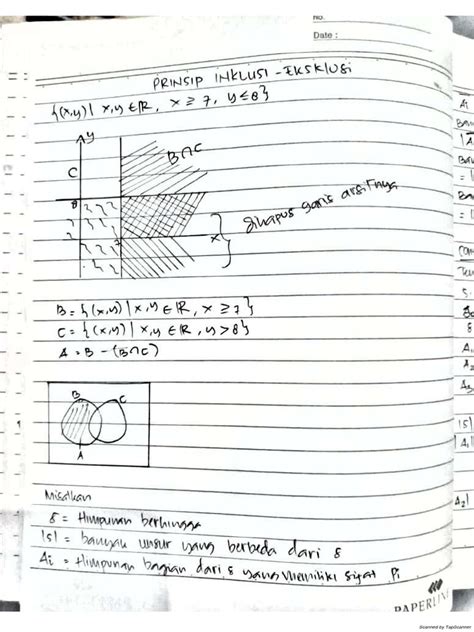 No.
Date :
PRINSIP INKLUSI - EKSKLUSI
{(x,y) | x,y ∈ ℝ, x ≥ 7, y ≤ 8}
y
B∩C
C
8
7
x
dihapus garis arsirnya
B = {(x,y) | x,y ∈ ℝ, x ≥ 7}
C = {(x,y) | x,y ∈ ℝ, y > 8}
A = B - (B∩C)
B
C
A
Misalkan
S = Himpunan berhingga
|S| = banyak unsur yang berbeda dari S
Ai = Himpunan bagian dari S yang memiliki sifat Pi
PAPERLINE
Scanned by TapScanner